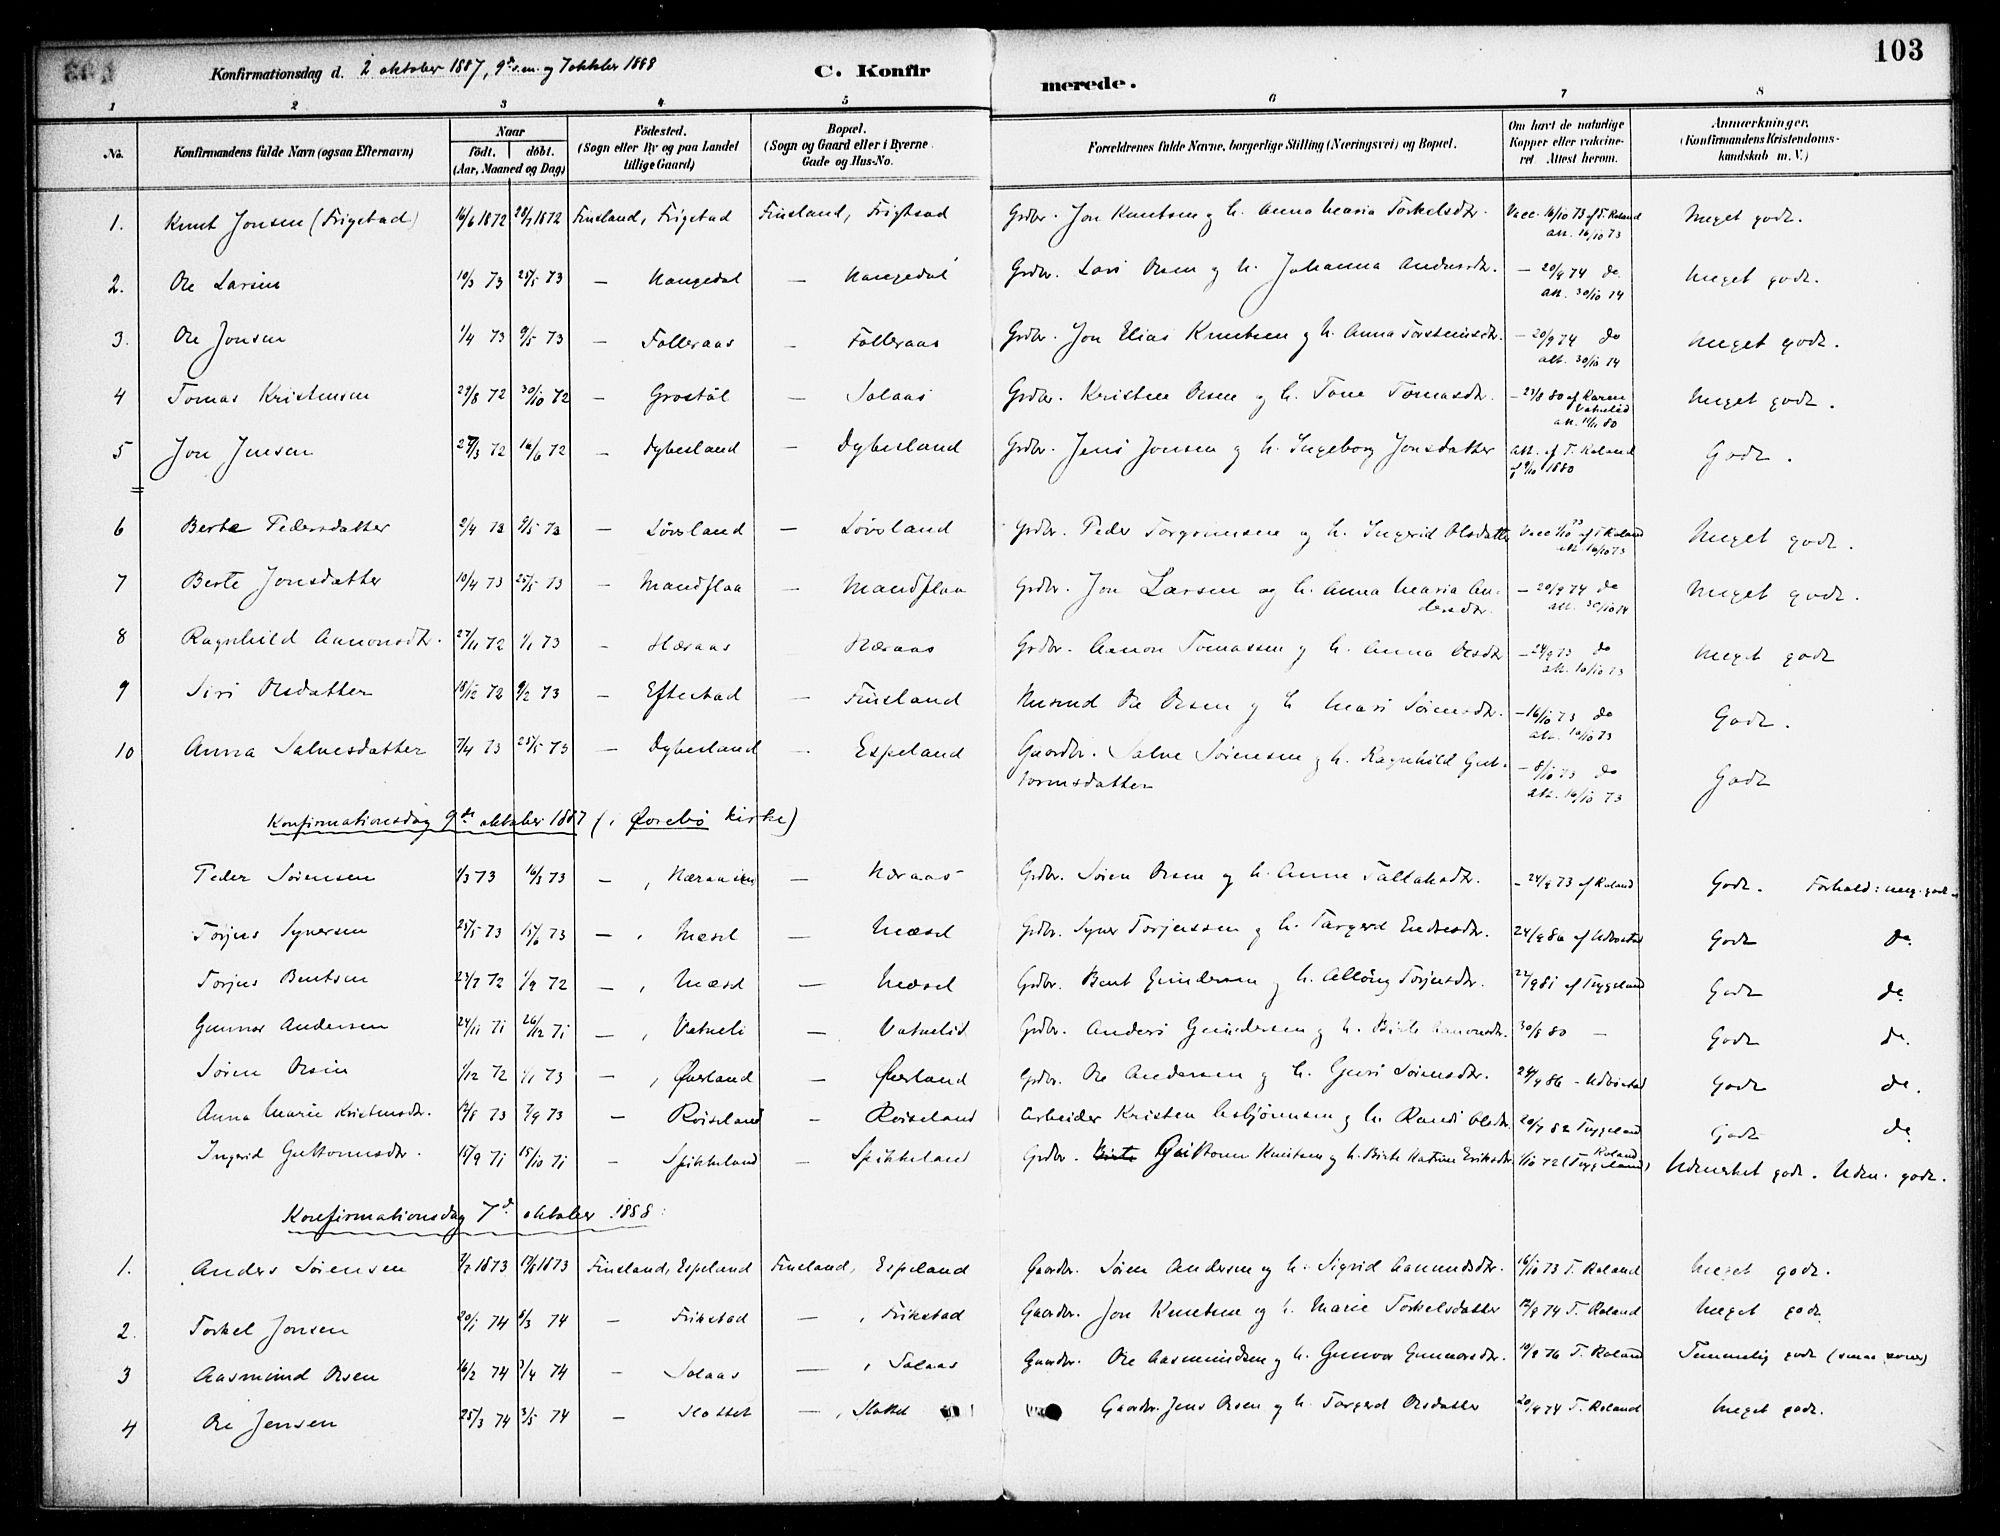 103
Konfirmationsdag d. 2 oktober 1887, 9de s.m. og 7 oktbler 1888 C. Konfirmerede.
1 2 3 4 5 6 7 8
No. Konfirmandens fulde Navn (ogsaa Efternavn) Naar födt. döbt. (Aar, Maaned og Dag) Födested. (Sogn eller By og paa Landet tillige Gaard) Bopæl. (Sogn og Gaard eller i Byerne Gade og Hus-No. Forældrenes fulde Navne, borgerlige Stilling (Næringsvei) og Bopæl. Om havt de naturlige Kopper eller vakcineret Attest herom. Anmærkninger. (Konfirmandens Kristendomskundskab m. V.)
1. Knut Jonsen (Frigstad) 16/6 1872 28/7 1872 Finsland, Frigstad Finsland, Frigstad Grdbr. Jon Knutsen og h. Anna Maria Torkelsdtr. Vacc. 16/10 73 af T. Roland att. 16/10 73 Meget godt.
2. Ole Larsen 10/3 73 25/5 73 — Haugedal — Haugedal Grdbr. Lars Olsen og h. Johanna Andersdtr. — 20/9 74 do att. 30/10 74 Meget godt.
3. Ole Jonsen 1/4 73 9/5 73 — Folleraas — Folleraas Grdbr. Jon Elias Knutsen og h. Anna Torsteinsdtr. — 20/9 74 do att. 30/10 74 Meget godt.
4 Tomas Kristensen 29/8 72 30/10 72 — Grostøl — Solaas Grdbr. Kristen Olsen og h. Tone Tomasdtr. — 23/8 80 af Karen Vatnelid Meget godt.
5 Jon Jensen 27/3 72 16/6 72 — Dybesland — Dybesland Grdbr. Jens Jonsen og h. Ingeborg Jonsdatter att. af T. Roland 1880 Godt.
6 Berte Pedersdatter 2/4 73 9/5 73 — Løvsland — Løvsland Grdbr. Peder Torgrimsen og h. Ingerid Olsdatter Vacc 1/10 73 af T Roland att. 16/10 73 Meget godt.
7 Berte Jonsdatter 10/4 73 25/5 73 — Mandflaa — Mandflaa Grdbr. Jon Larsen og h. Anna Maria Andersdtr. — 20/9 74 do att. 30/10 74 Meget godt.
8 Ragnhild Aanonsdtr. 27/11 72 1/1 73 — Hæraas — Næraas Grdbr. Aanon Tomassen og h. Anna Olsdtr — 24/9 73 do att. 16/10 73 Meget godt
9 Siri Olsdatter 18/12 72 9/2 73 — Eftestad — Finsland Husmd Ole Olsen og h Mari Sørensdtr. — 16/10 73 do att. 16/10 73 Godt.
10 Anna Salvesdatter 7/4 73 25/5 73 — Dybesland — Espeland Gaardbr. Salve Sørensen og h. Ragnhild Guttormsdatter — 8/10 73 do att. 16/10 73 Godt
Konfirmationsdag 9de oktober 1887 (i Øvrebø kirke)
Peder Sørensen 1/3 73 16/3 73 —, Næraasen — Næraas Grdbr. Søren Olsen og h. Anne Tallaksdtr. — 24/9 73 af Roland Godt. Forhold: meg. godt
Torjus Synersen 23/5 73 15/6 73 —, Mæsel — Mæsel Grdbr. Syner Torjussen og h. Targerd Endresdtr. 24/9 86 af Udbøstad Godt do.
Torjus Bentsen 23/7 72 1/9 72 —, Mæsel — Mæsel Grdbr. Bent Gundersen og h. Allaug Torjusdtr. 22/9 81 af Tryggeland Godt do.
Gunnar Andersen 24/11 71 26/12 71 —, Vatneli — Vatnelid Grdbr. Anders Gundersen og h. Birte Aanonsdtr. 30/8 80 — Godt do.
Søren Olsen 1/12 72 1/1 73 —, Øverland — Øverland Grdbr. Ole Andersen og h. Guri Sørensdtr. 24/9 86 - Udbøstad Godt do.
Anna Marie Kristensdtr. 12/8 73 7/9 73 — Røiseland — Røiseland Arbeider Kristen Asbjørnsen og h. Randi Olsdtr. 20/7 82 Tryggeland Godt do
Ingerid Guttormsdtr. 15/9 71 15/10 71 — Spikkeland — Spikkeland Grdbr. Guttorm Knutsen og h. Birte Katrine Eriksdtr 1/10 72 (Roland Tryggeland) Udmerket godt. Udm. godt.
Konfirmationsdag 7de oktober 1888:
1. Anders Sørensen 7/7 1873 17/8 1873 Finsland, Espeland Finsland, Espeland Gaardbr. Søren Andersen og h. Sigrid Aamundsdtr. 16/10 73 T. Roland Meget godt.
2. Torkel Jonsen 20/1 74 8/3 74 — Frikstad —, Frikstad Gaardbr. Jon Knutsen og h. Marie Torkelsdatter 12/9 74 T. Roland Meget godt
3 Aasmund Olsen 16/2 74 3/4 74 — Solaas —, Solaas Gaardbr. Ole Aasmundsen og h. Gunvor Gunnarsdtr. 19/9 76 T. Roland Temmelig godt (smaa evner)
4 Ole Jensen 25/3 74 3/5 74 — Slottet —, Slottet Gaardbr. Jens Olsen og h. Targerd Olsdatter 20/9 74 T. Roland Meget godt.